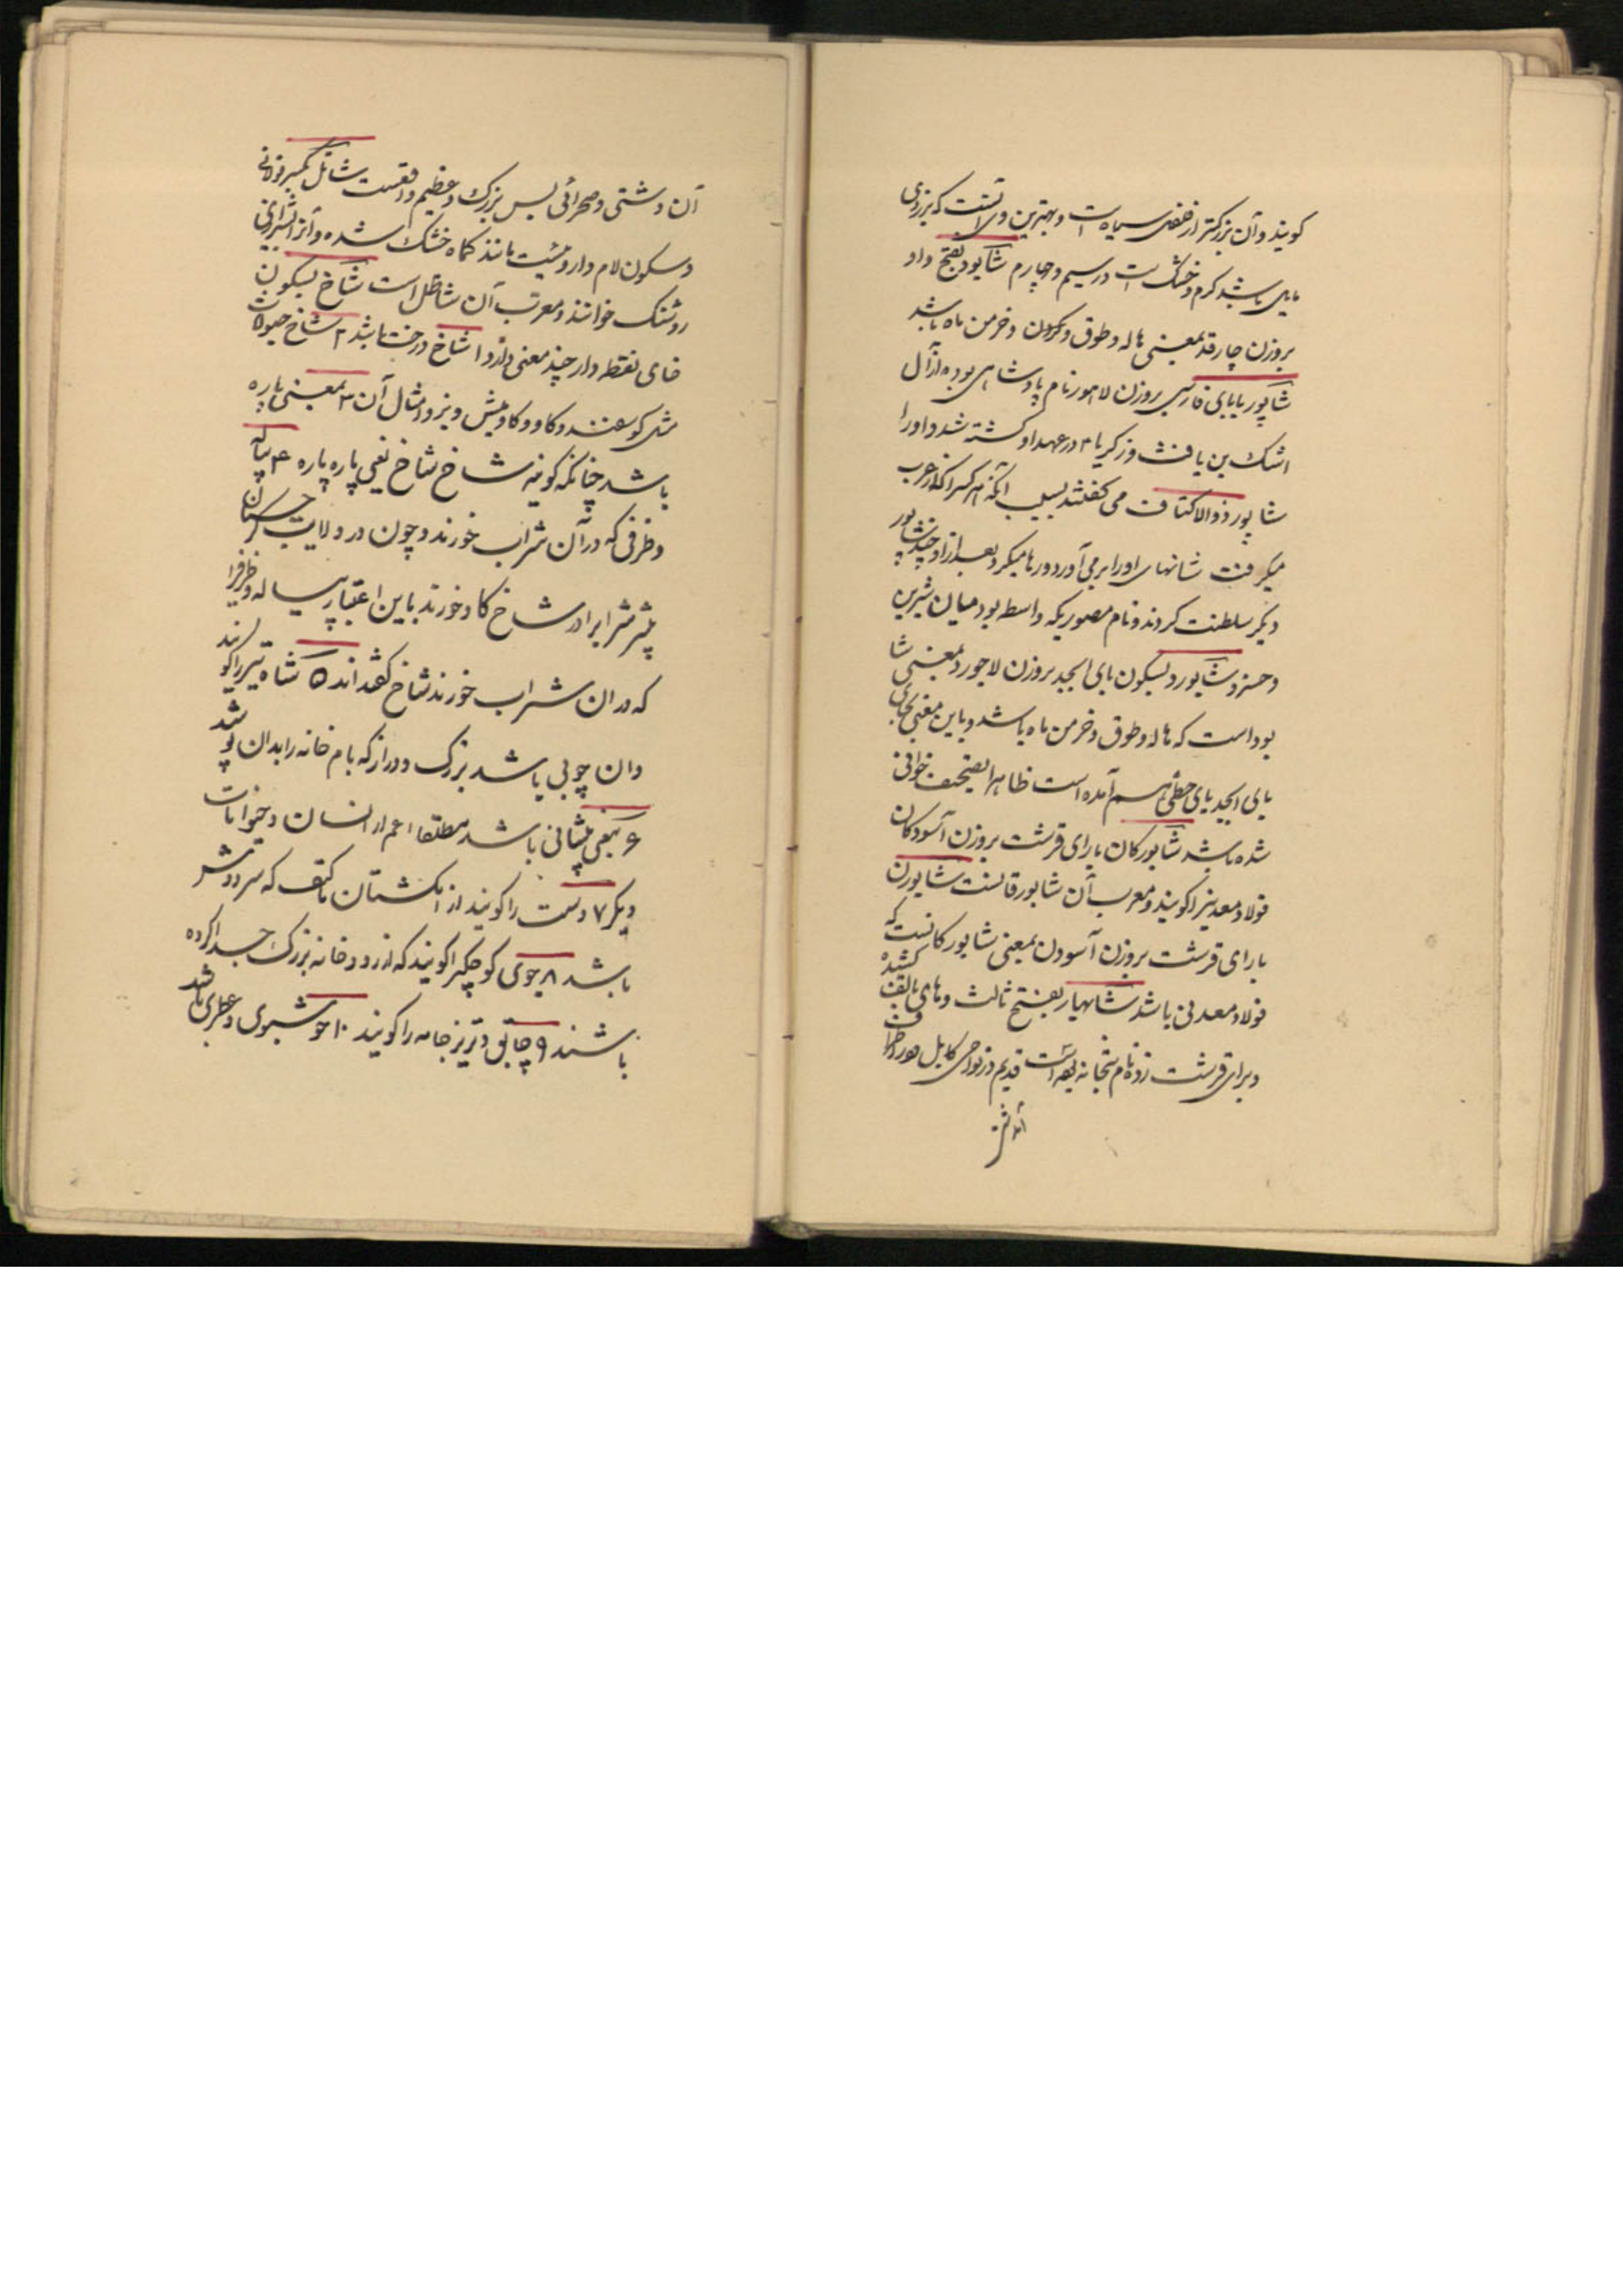 کویند و آن بزرکتر از خفض سیاه است و بهترین وی آنست که بزردی
مایل باشد کرم و خشک است در سیم و چهارم شایود بفتح واو
بروزن چارقد بمعنی هاله و طوق و کردن و خرمن ماه باشد
شاپور بابای فارسی بروزن لاهور نام پادشاهی بوده از آل
اشک بن یافث و زکریا ۴ در عهد او کشته شد و او را
شاپور ذوالاکتاف می کفتند بسبب آنکه هر کس را که از عرب
میکرفت شانهای او را بر می آورد و رها میکرد بعد از او چند شاپور
دیکر سلطنت کردند و نام مصوریکه واسطه بود میان شیرین
و خسرو شابورد بسکون بای ابجد بروزن لاجورد بمعنی شا
بود است که هاله و طوق و خرمن ماه باشد و باین معنی بجای
بای ابجد یای حطی هم آمده است ظاهرا تصحیف خوانی
شده باشد شابورکان با رای قرشت بروزن آسودکان
فولاد معدنیرا کویند و معرب آن شابورقانست شابورن
با رای قرشت بروزن آسودن بمعنی شابورکانست که
فولاد معدنی باشد شابهار بفتح ثالث و های بالف کشیده
و برای قرشت زده نام بتخانه بوده است قدیم در نواحی کابل و در اطراف
آن دشتی
آن دشتی و صحرائی بس بزرک و عظیم واقعست شاتل بکسر فوقانی
و سکون لام داروئیست مانند کماه خشک شده و آنرا بشیرازی
روشنک خوانند و معرب آن شاطل است شاخ بسکون
خای نقطه دار چند معنی دارد ۱ شاخ درخت باشد ۲ شاخ حیوانات
مثل کوسفند و کاو و کاومیش و بز و امثال آن ۳ بمعنی پاره
باشد چنانکه کویند شاخ شاخ یعنی پاره پاره ۴ پیاله
و ظرفی که در آن شراب خورند و چون در ولایت
پیشتر شراب را در شاخ کاو خورند باین اعتبار پیاله و ظرفیرا
که در ان شراب خورند شاخ کفته اند ۵ شاه تیر را کویند
و ان چوبی باشد بزرک و دراز که بام خانه را بدان پوشند
۶ بمعنی پیشانی باشد مطلقا اعم از انسان و حیوانات
دیکر ۷ دست را کویند از انکشتان تا کتف که سر دوش
باشد ۸ جوی کوچکرا کویند که از رودخانه بزرک جدا کرده
باشند ۹ چابق و تریز جامه را کویند ۱۰ خوشبوی و عطری باشد